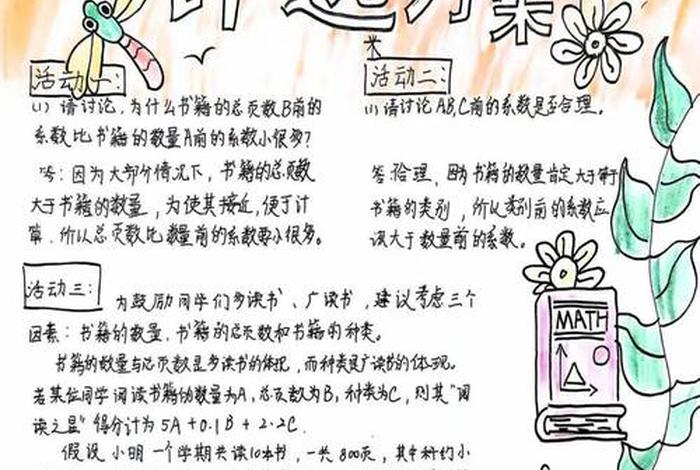 评选方案
活动一:
(1) 请讨论,为什么书籍的总页数B前的
系数比书籍的数量A前的系数小很多?
答:因为大部分情况下,书籍的总页数
大于书籍的数量,为使其接近,便于计
算.所以总页数比数量前的系数要小很多。
活动二:
(1) 请讨论AB,C前的系数是否合理。
答:合理,因为书籍的数量肯定大于等于
书籍的类别,所以类别前的系数应
该大于数量前的系数。
活动三:
为鼓励同学们多读书、广读书,建议考虑三个
因素:书籍的数量.书籍的总页数和书籍的种类。
书籍的数量与总页数是多读书的体现,而种类是广读书的体现。
若某位同学阅读书籍的数量为A,总页数为B,种类为C,则其"阅
读之星"得分计为5A+0.1B+2.2C.
假设小明一个学期共读10本书,一共800页,其中科幻小
MATH